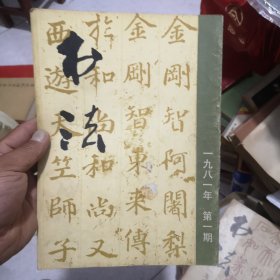 书法
金剛智阿闍梨
金剛智東来傳
於和尚和尚又
西遊天竺師子
一九八一年 第一期
书法